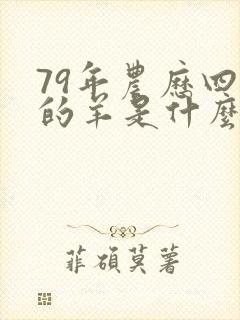 79年農歷四
的羊是什麼
菲碩莫著